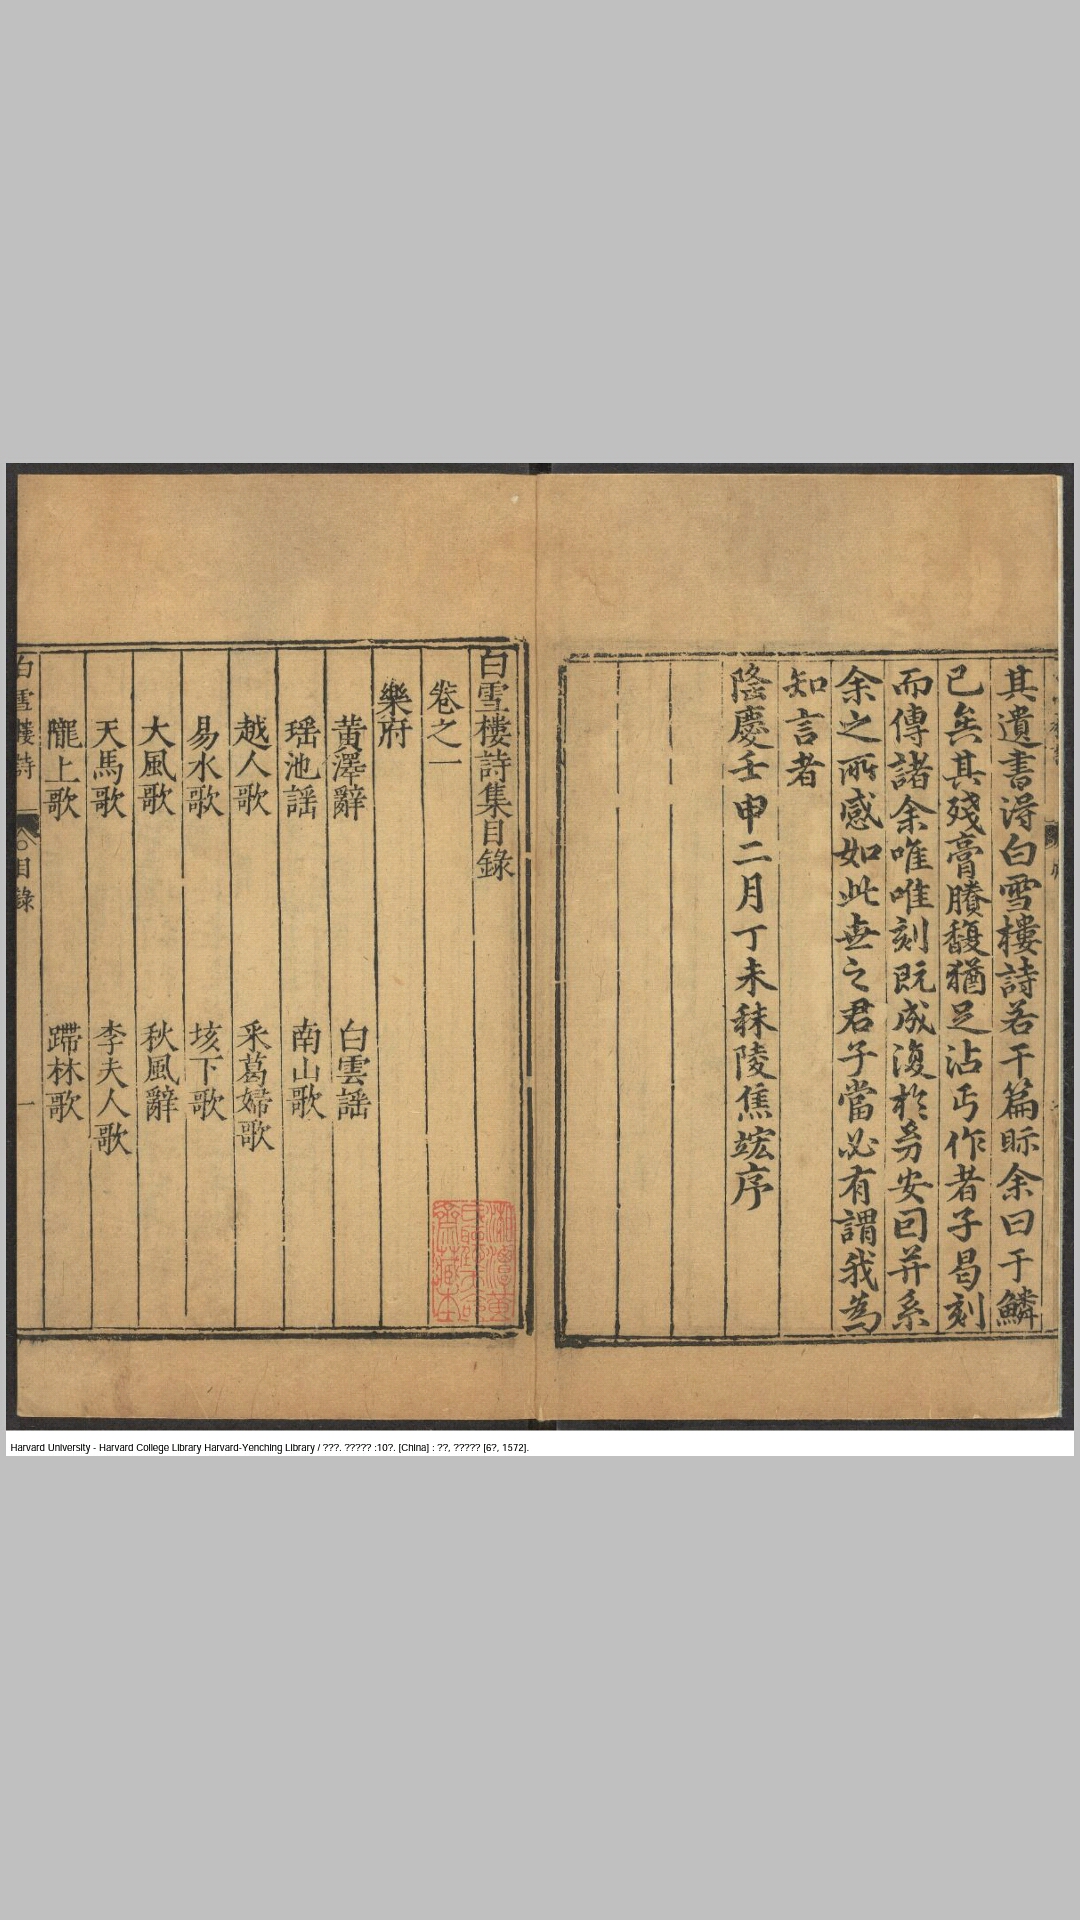 其遺書淂白雪樓詩若干篇眎余曰于鱗
已矣其殘膏賸馥猶足沾丐作者子曷刻
而傳諸余唯唯刻既成復於勇安囙并系
余之所感如此世之君子當必有謂我為
知言者
隆慶壬申二月丁未秣陵焦竑序
白雪樓詩集目錄
卷之一
樂府
黃澤辭 白雲謡
瑶池謡 南山歌
越人歌 采葛婦歌
易水歌 垓下歌
大風歌 秋風辭
天馬歌 李夫人歌
隴上歌 蹛林歌
白雪樓詩 目錄 一
Harvard University - Harvard College Library Harvard-Yenching Library / ???. ????? :10?. [China] : ??, ????? [6?, 1572].